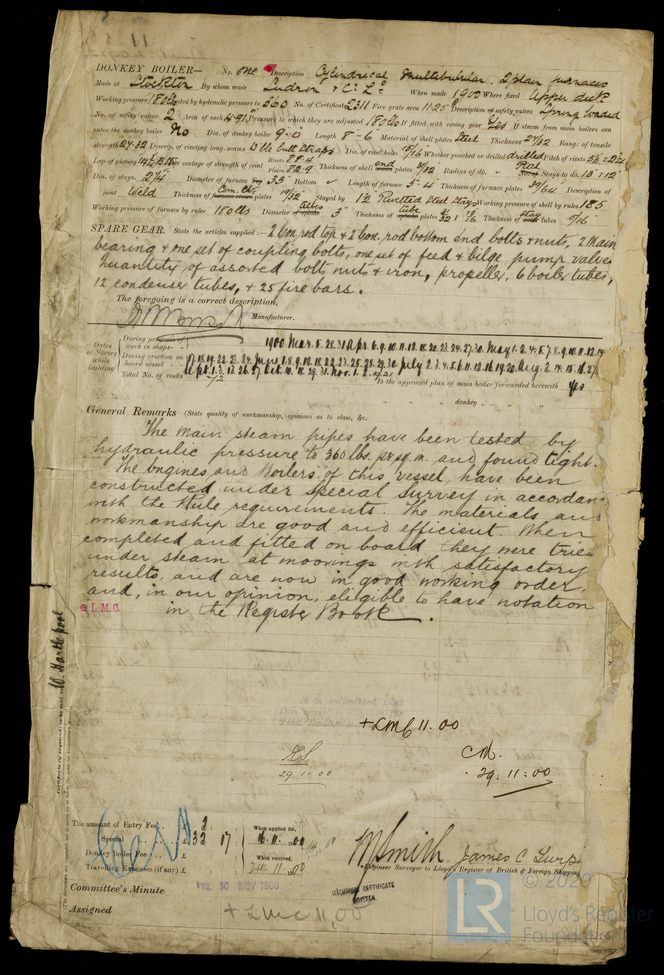 DONKEY BOILER— No. one Description Cylindrical Multitubular, 2 plain furnaces
Made at Stockton By whom made Ludron & Co Ld When made 1900 Where fixed Upper deck
Working pressure 180 lbs tested by hydraulic pressure to 360 No. of Certificate 2311 Fire grate area 11.25 Description of safety valves Spring loaded
No. of safety valves 2 Area of each 4.91 Pressure to which they are adjusted 180 lbs If fitted with easing gear Yes If steam from main boilers can
enter the donkey boiler No Dia. of donkey boiler 9-0 Length 8-6 Material of shell plates Steel Thickness 27/32 Range of tensile
strength 27-32 Descrip. of riveting long. seams Dble butt straps Dia. of rivet holes 15/16 Whether punched or drilled drilled Pitch of rivets
Lap of plating Per centage of strength of joint Rivets 88.4 Plates 82.9 Thickness of shell end plates Radius of do. Stays to do.
Dia. of stays. 2 1/4 Diameter of furnace Top 33" Bottom Length of furnace 5-4 Thickness of furnace plates 39/64 Description of
joint Weld Thickness of furnace crown plates Com. Chr 19/32 Stayed by Riveted Steel Stays Working pressure of shell by rules 185
Working pressure of furnace by rules 180 lbs Diameter of 3" Thickness of plates Thickness of Stay tubes 5/16
SPARE GEAR. State the articles supplied:— 2 Con. rod top & 2 Con. rod bottom end bolts & nuts, 2 Main
bearing & one set of coupling bolts, one set of feed & bilge pump valves
Quantity of assorted bolts nuts & iron, propeller, 6 boiler tubes,
12 condenser tubes, & 25 fire bars.
The foregoing is a correct description,
Manufacturer.
Dates of Survey while building
During progress of work in shops - - 1900 Mar. 5. 28. 31 Apr. 6. 9. 10. 11. 12. 18. 20. 23. 24. 27. 30. May 1. 2. 4. 5. 7. 8. 9. 10. 11. 12. 14
During erection on board vessel - - 17. 18. 19. 22. 23. 24. June 1. 8. 9. 12. 18. 22. 23. 25. 28. 29. 30. July 2. 3. 4. 5. 6. 11. 12. 16. 19. 20. Aug. 2. 14. 15. 16. 27
Total No. of visits Sept. 1. 3. 13. 26. 27. Oct. 10. 18. 29. 31. Nov. 1. 2.
Is the approved plan of main boiler forwarded herewith Yes
" " " donkey " " "
General Remarks (State quality of workmanship, opinions as to class, &c.
The main steam pipes have been tested by
hydraulic pressure to 360 lbs. per sq. in. and found tight.
The Engines and Boilers of this vessel, have been
constructed under Special Survey in accordance
with the Rule requirements. The materials and
workmanship are good and efficient. When
completed and fitted on board they were tried
under steam at moorings with satisfactory
results, and are now in good working order
and, in our opinion, eligible to have notation
L.M.C. in the Register Book.
W. Hartlepool
Certificate (if required) to be sent to
+ LMC 11.00
29.11.00
CM.
29.11.00
The amount of Entry Fee . . £ 2
Special . . . . £ 32 : 17 :
Donkey Boiler Fee . . . £
Travelling Expenses (if any) £
When applied for,
16.11.00
When received,
M Smith James C
Engineer Surveyor to Lloyd's Register of British & Foreign Shipping
Committee's Minute
FRI. 30 NOV 1900
MACHINERY CERTIFICATE WRITTEN.
Assigned + LMC 11,00
© 2020
LR
Lloyd's Register
Foundation